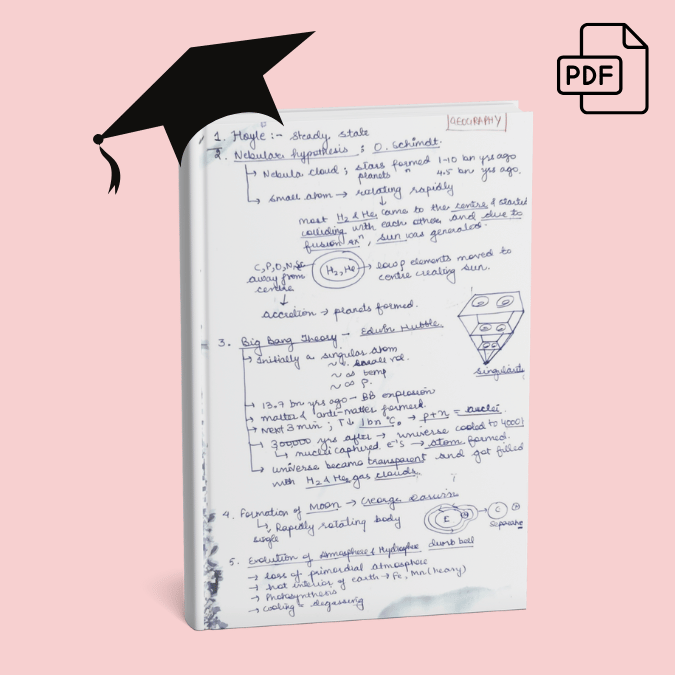 PDF
GEOGRAPHY
1. Hoyle :- steady state
2. Nebular hypothesis ; O. Schimdt.
Nebula cloud ; stars formed 1-10 bn yrs ago
planets " 4.5 bn yrs ago.
small atom → rotating rapidly
most H₂ & He came to the centre & started
colliding with each other and due to
fusion rxⁿ, sun was generated.
C, P, O, N, Si
away from
centre
H₂, He
→ low ρ elements moved to
centre creating sun.
accretion → planets formed.
3. Big Bang Theory - Edwin Hubble
Initially a singular atom
~ small vol.
~ ∞ temp.
~ ∞ ρ.
singularity
13.7 bn yrs ago - BB explosion
matter & anti-matter formed.
Next 3 min ; T↓ 1 bn °C → p+n = nuclei.
300,000 yrs after → universe cooled to 4000
nuclei captured e⁻s → atom formed.
universe became transparent and got filled
with H₂ & He gas clouds.
4. Formation of Moon → George Darwin
Rapidly rotating body
single
dumb bell
E
C
separate
5. Evolution of Atmosphere & Hydrosphere
→ loss of primordial atmosphere
→ hot interior of earth → Fe, Mn (heavy)
→ Photosynthesis
→ cooling = degassing